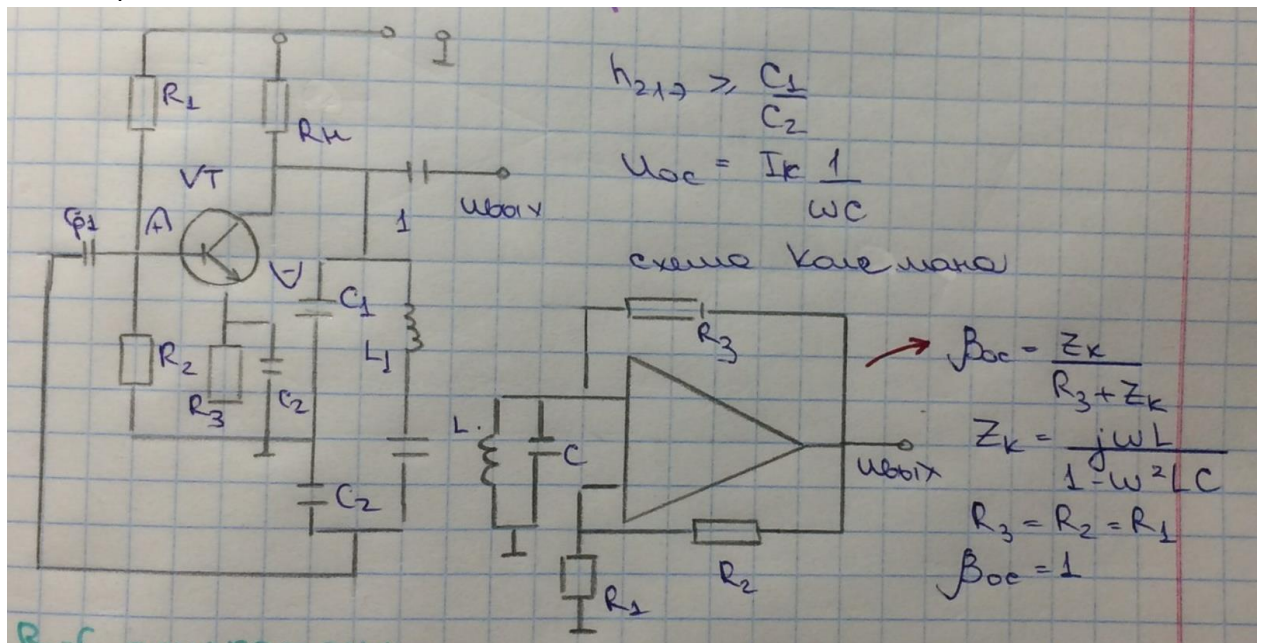 R1
Rн
VT
Cр1
A
1
uвых
C1
L1
R2
R3
C2
C2
h21э ≥ C1/C2
Uос = Iк 1/ωC
схема Колемана
R3
L
C
uвых
R2
R1
βос = Zк/(R3 + Zк)
Zк = jωL/(1 - ω²LC)
R3 = R2 = R1
βос = 1